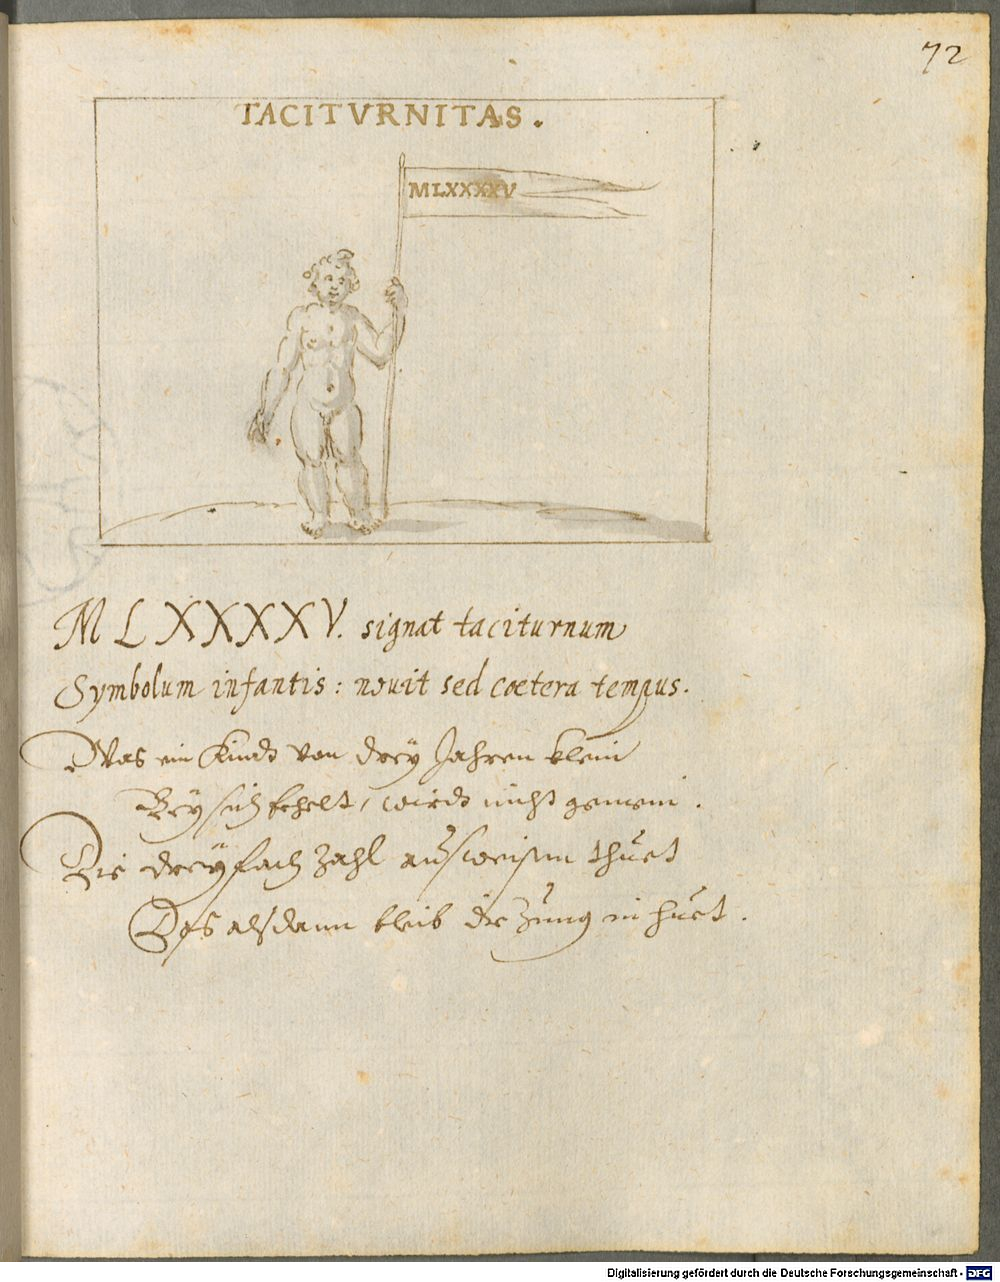 72
TACITVRNITAS.
MLXXXXV
MLXXXXV. signat taciturnum
Symbolum infantis: nouit sed coetera tempus.
Was ein Kindt von drey Jahren klein
Bey sich behelt, wirdt nicht gemein.
Die dreyfach Zahl ausweisen thuet
Das alsdann bleib die Zung in huet.
Digitalisierung gefördert durch die Deutsche Forschungsgemeinschaft - DFG